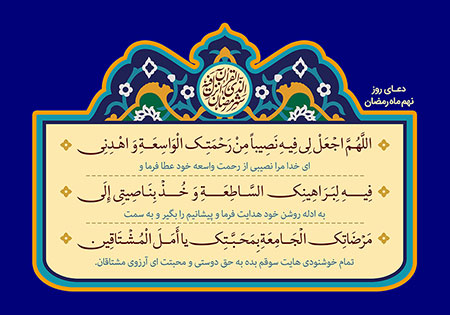 شهر رمضان الذی انزل فیه القرآن
دعـای روز
نهم ماه رمضان
اللَّهُمَّ اجْعَلْ لِی فِیهِ نَصِیباً مِنْ رَحْمَتِكَ الْوَاسِعَةِ وَ اهْدِنِی
ای خدا مرا نصیبی از رحمت واسعه خود عطا فرما و
فِیهِ لِبَرَاهِینِكَ السَّاطِعَةِ وَ خُذْ بِنَاصِیَتِی إِلَی
به ادله روشن خود هدایت فرما و پیشانیم را بگیر و به سمت
مَرْضَاتِكَ الْجَامِعَةِ بِمَحَبَّتِكَ یا أَمَلَ الْمُشْتَاقِینَ
تمام خوشنودی هایت سوقم بده به حق دوستی و محبتت ای آرزوی مشتاقان.